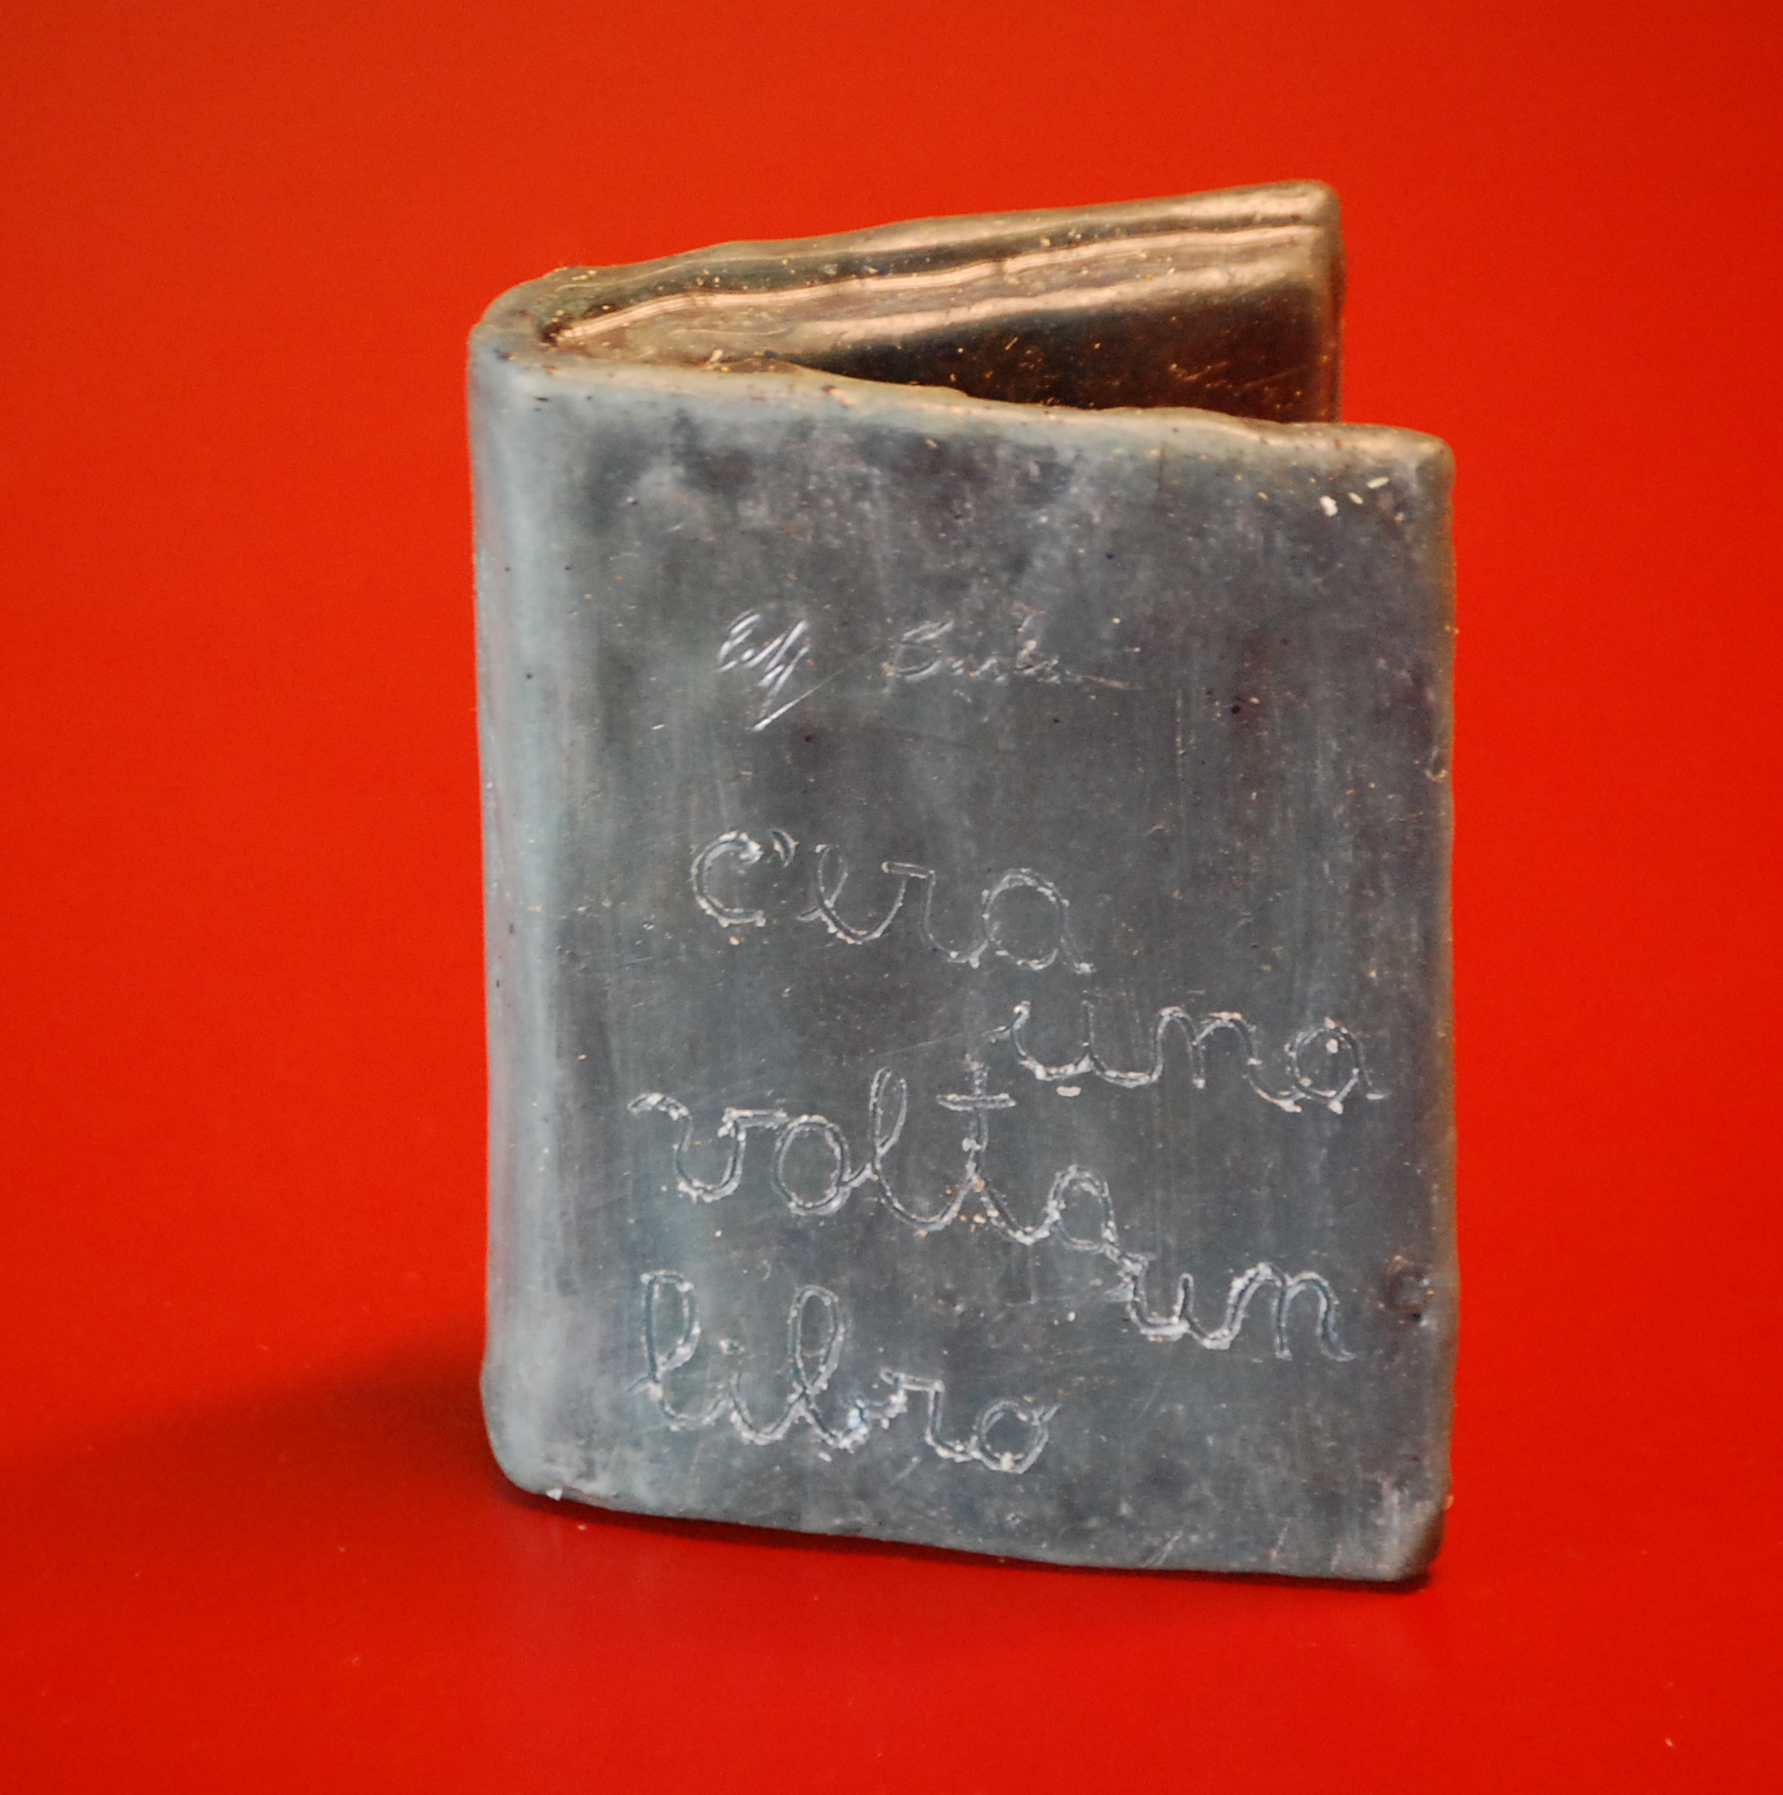 c'era
una
volta
un
libro